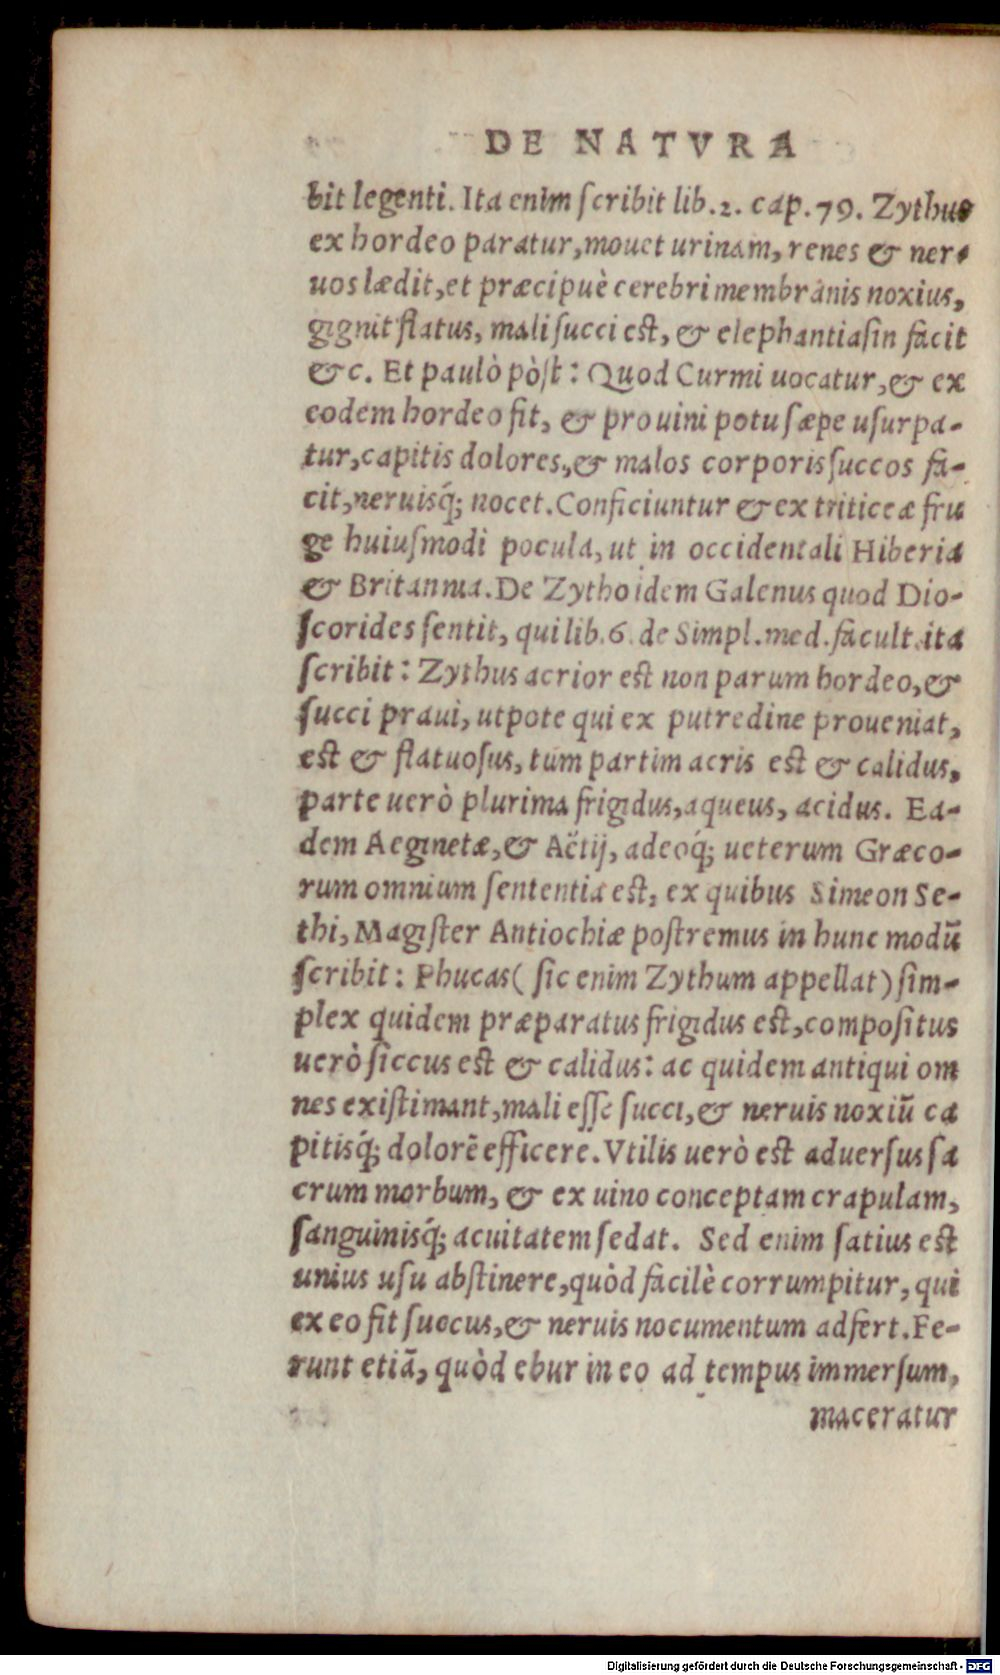 DE NATVRA
bit legenti. Ita enim ſcribit lib.2. cap.79. Zythus
ex hordeo paratur, mouet urinam, renes & ner-
uos lædit, et præcipuè cerebri membranis noxius,
gignit flatus, mali ſucci est, & elephantiaſin facit
&c. Et paulò pòſt: Quod Curmi uocatur, & ex
eodem hordeo fit, & pro uini potu ſæpe uſurpa-
tur, capitis dolores, & malos corporis ſuccos fa-
cit, neruisq́; nocet. Conficiuntur & ex triticeæ fru
ge huiuſmodi pocula, ut in occidentali Hiberia
& Britannia. De Zytho idem Galenus quod Dio-
ſcorides ſentit, qui lib.6. de Simpl. med. facult. ita
ſcribit: Zythus acrior est non parum hordeo, &
ſucci praui, utpote qui ex putredine proueniat,
est & flatuoſus, tum partim acris est & calidus,
parte uerò plurima frigidus, aqueus, acidus. Ea-
dem Aeginetæ, & Aëtij, adeoq́; ueterum Græco-
rum omnium ſententia est, ex quibus Simeon Se-
thi, Magiſter Antiochiæ poſtremus in hunc modū
ſcribit: Phucas (ſic enim Zythum appellat) ſim-
plex quidem præparatus frigidus est, compoſitus
uerò ſiccus est & calidus: ac quidem antiqui om
nes exiſtimant, mali eſſe ſucci, & neruis noxiū ca
pitisq́; dolorē efficere. Vtilis uerò est aduerſus ſa
crum morbum, & ex uino conceptam crapulam,
ſanguinisq́; acuitatem ſedat. Sed enim ſatius est
unius uſu abſtinere, quòd facilè corrumpitur, qui
ex eo fit ſuccus, & neruis nocumentum adfert. Fe-
runt etiā, quòd ebur in eo ad tempus immerſum,
maceratur
Digitalisierung gefördert durch die Deutsche Forschungsgemeinschaft - DFG